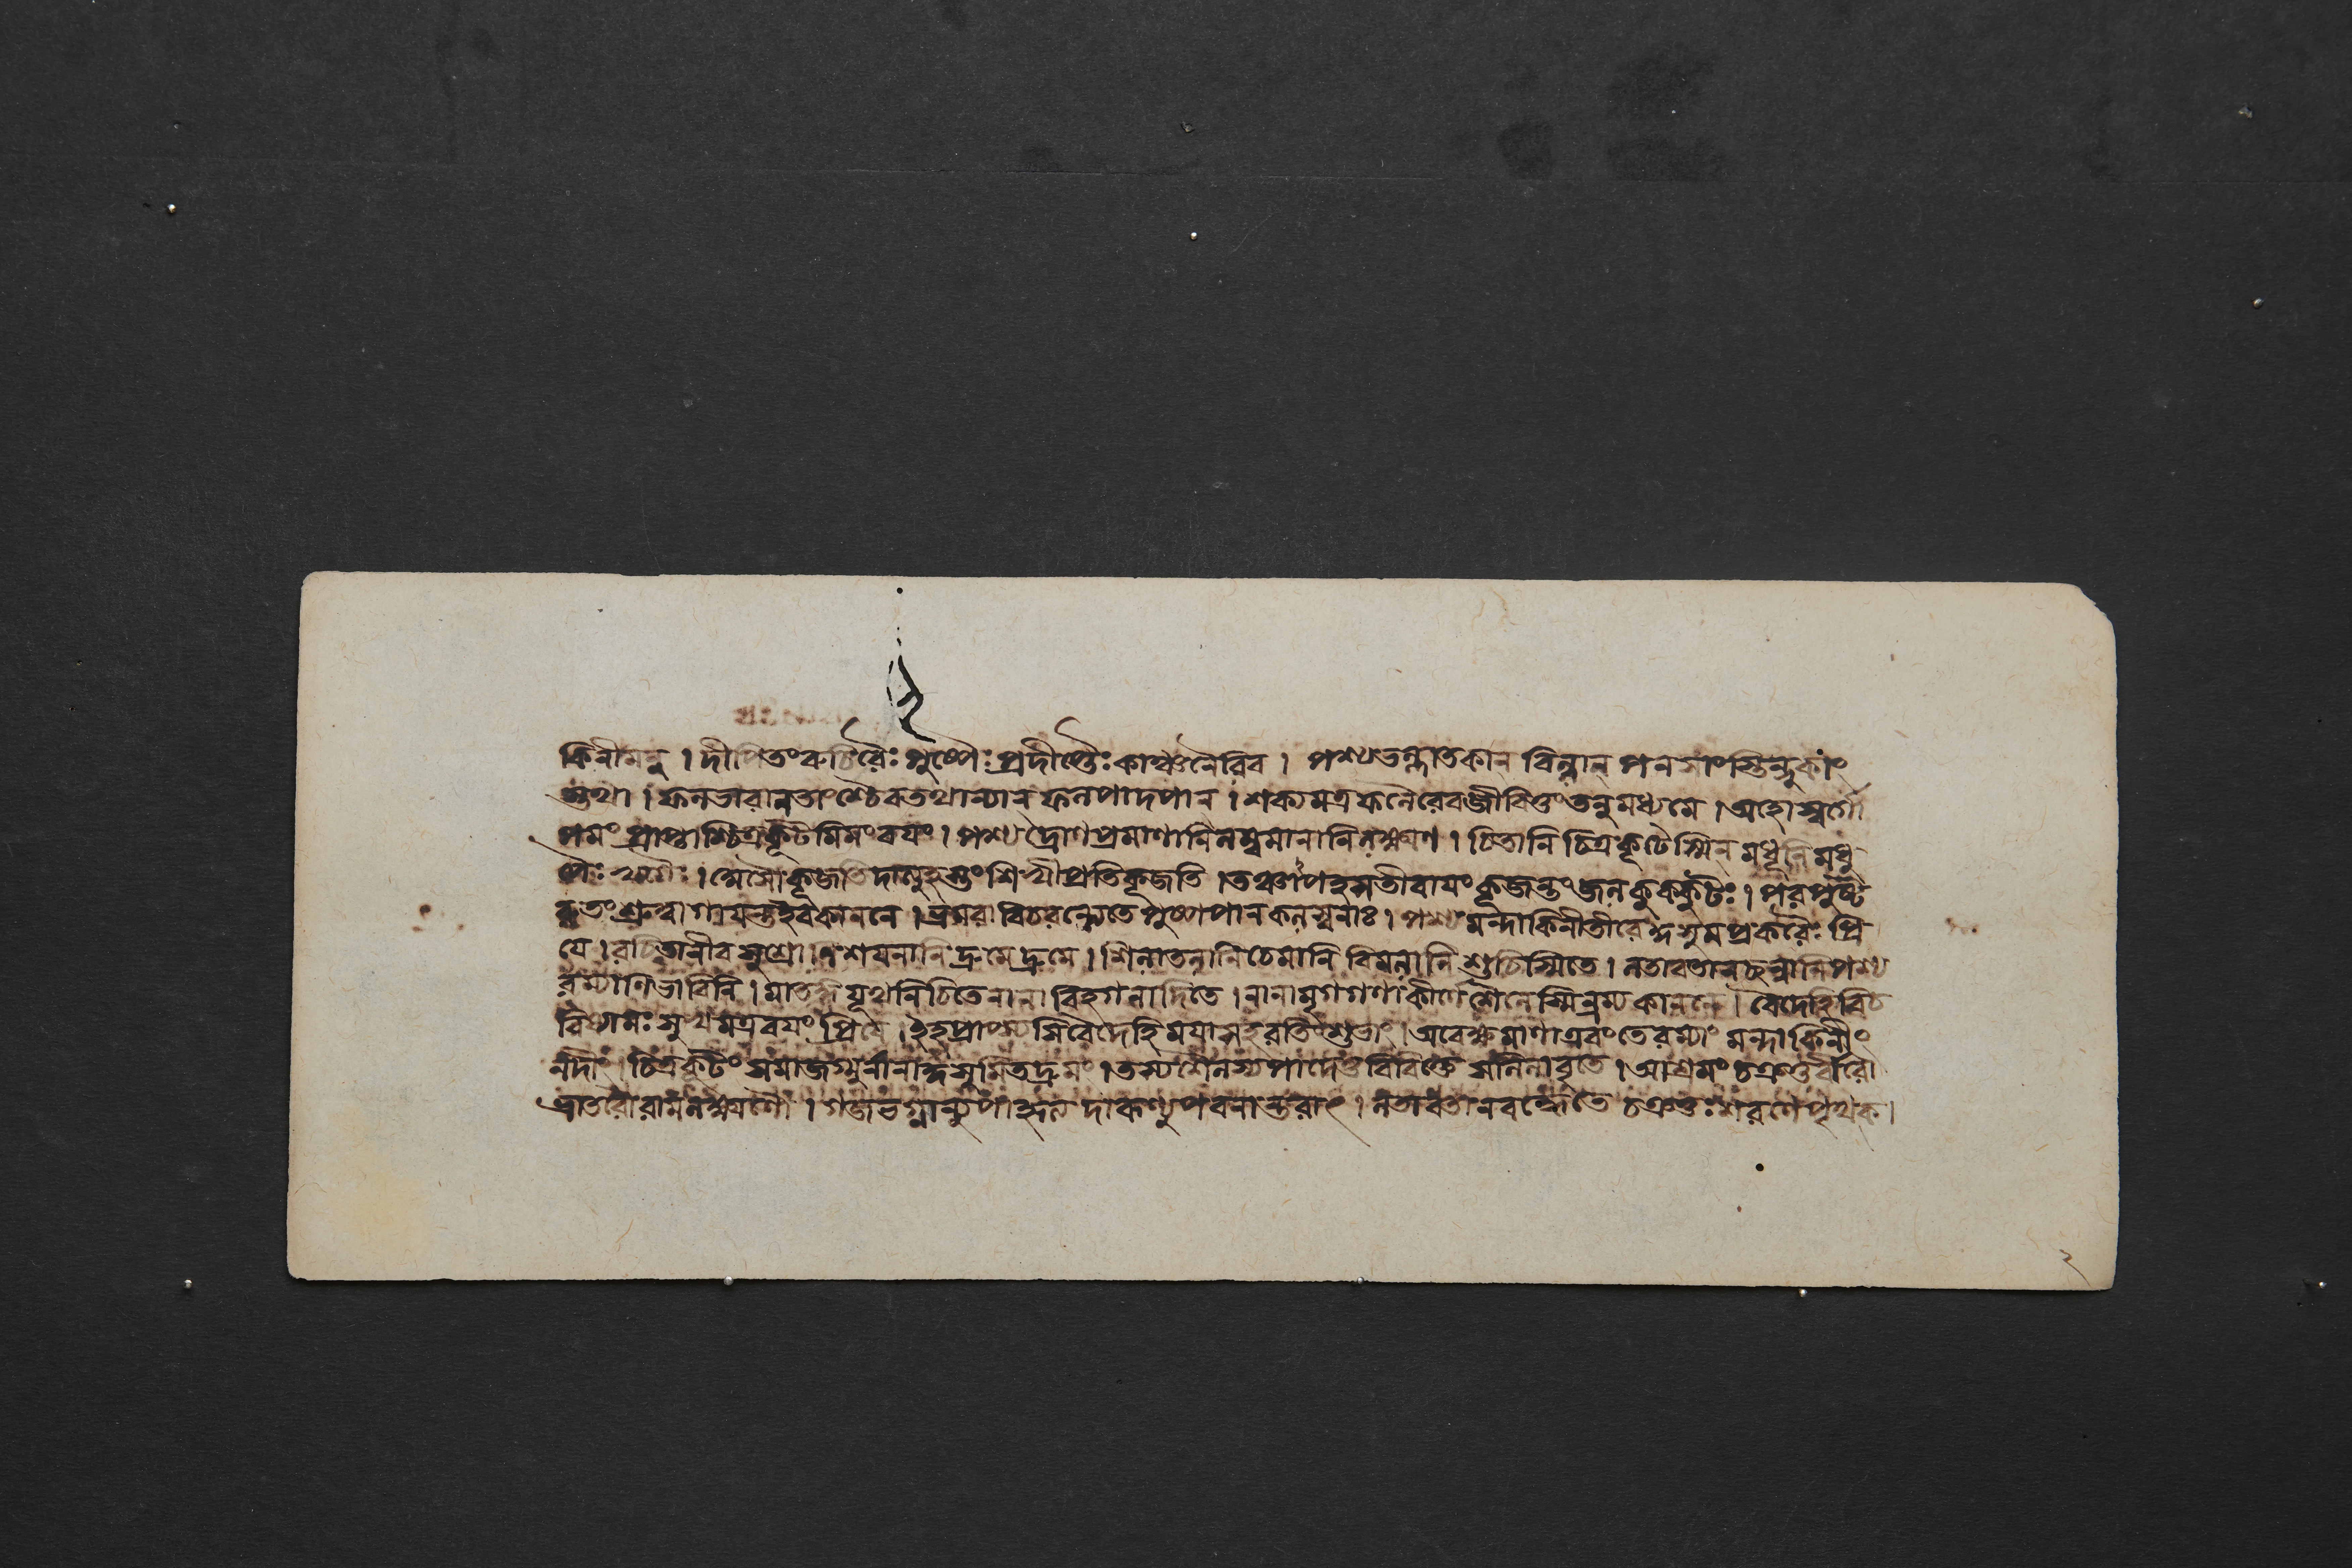 কিনীমনু । দীপিতং রুচিরৈঃ পুষ্পৈঃ প্রদীপ্তৈঃ কাঞ্চনৈরিব । পশ্য ভল্লাতকান্ বিল্বান্ পনসাংস্তিন্দুকাং
স্তথা । ফলভারানতাংশ্চৈব তথান্যান্ ফলপাদপান্ । শক্যমত্র ফলৈরেব জীবিতুং তনুমধ্যমে । অহো স্বর্গো
পমং প্রাপ্তাশ্চিত্রকূটমিমং বয়ং । পশ্য দ্রোণপ্রমাণানি লম্বমানানি লক্ষ্মণ । চিতানি চিত্রকূটেস্মিন্ মধূনি মধু
পৈঃ খগৈঃ । অসৌ কূজতি দাত্যূহস্তং শিখী প্রতিকূজতি । তঞ্চাপহসতীবায়ং কূজন্তং জলকুক্কুটঃ । পরপুষ্ট
রুতং শ্রুত্বা গায়ন্ত ইব কাননে । ভ্রমরা বিচরন্ত্যেতে পুষ্পপানকলস্বনাঃ । পশ্য মন্দাকিনীতীরে কুসুমপ্রকরৈঃ প্রি
যে । রচিতানীব সুশ্রোণি শয়নানি দ্রুমে দ্রুমে । শিলাতলানি চেমানি বিমলানি শুচিস্মিতে । লতাবিতানছন্নানি পশ্য
রম্যাণি ভাবিনি । মাতঙ্গযূথনিচিতে নানাবিহগনাদিতে । নানামৃগগণাকীর্ণে শৈলেস্মিন্রম্যকাননে । বৈদেহি বিচ
রিষ্যামঃ সুখমত্র বয়ং প্রিয়ে । ইহ প্রাপ্স্যসি বৈদেহি ময়া সহ রতিং শুভাং । অবেক্ষমাণা এবং তে রম্যাং মন্দাকিনীং
নদীং । চিত্রকূটং সমাজগ্মুর্নানাকুসুমিতদ্রুমং । তস্য শৈলস্য পাদে তু বিবিক্তে সলিলাবৃতে । আশ্রমং চক্রতুর্বীরৌ
ভ্রাতরৌ রামলক্ষ্মণৌ । গজভগ্নান্যুপাহৃত্য দারূণ্যুপবনান্তরাৎ । লতাবিতানবদ্ধে তে চক্রতুঃ শরণে পৃথক্ ।